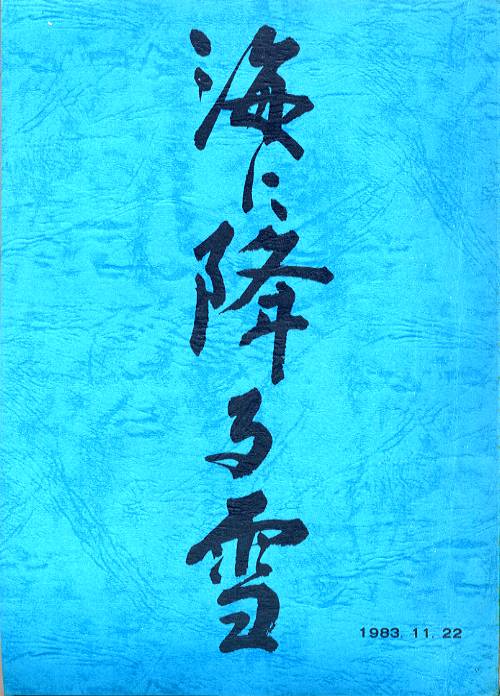 海に降る雪
1983. 11. 22